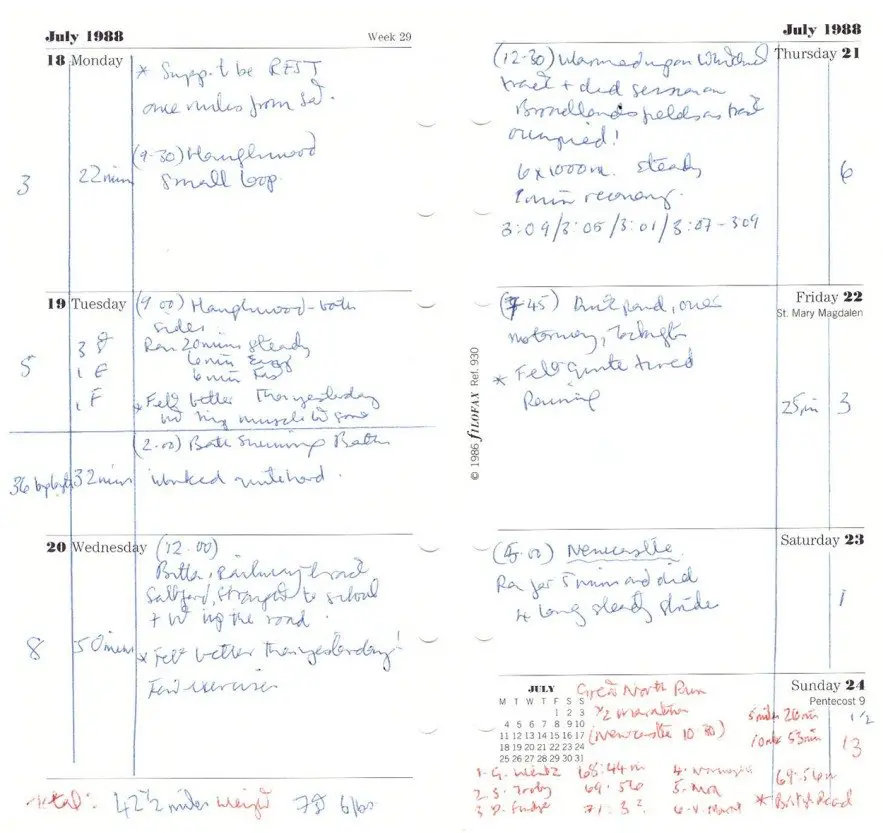 July 1988
Week 29
18 Monday
* Supp. t be REST
one miles from Sat.
(9.30) Haughwood
3
22 min
small loop
19 Tuesday
(9 00) Haughwood - both
sides
Ran 20 mins steady
6 min Easy
6 min Fast
5
3 S
1 E
1 F
* Felt better than yesterday
(2.00) Bath Swimming Baths
36
32 mins
worked quite hard.
20 Wednesday
(12.00)
Bitton, Railway track
Saltford, straight to school
+ up the road.
8
50 mins
* Felt better than yesterday!
Few exercises
Total: 42 1/2 miles Weight 7st 6lbs
July 1988
Thursday 21
(12-30) Warmed up on
track + did session on
Broadlands fields as track
occupied!
6 x 1000m. steady
1 min recovery.
6
3:09/3:05/3:01/3:07-309
Friday 22
St. Mary Magdalen
(7 45) pond, over
motorway,
* Felt quite tired
Raining
25 min
3
© 1986 filofax Ref. 930
Saturday 23
(5.00) Newcastle
Ran for 5 min and did
4 long steady strides
1
Sunday 24
Pentecost 9
JULY
M T W T F S S
1 2 3
4 5 6 7 8 9 10
11 12 13 14 15 16 17
18 19 20 21 22 23 24
25 26 27 28 29 30 31
Great North Run
1/2 marathon
(Newcastle 10 30)
5 miles 26 min
1 1/2
10 mls 53 min
13
1. G. Waitz 68:44m
2 S. Tooby 69:56
3 P. Fudge 71.3
4.
5. Mora
6. V. Marot
69.56m
* British Record